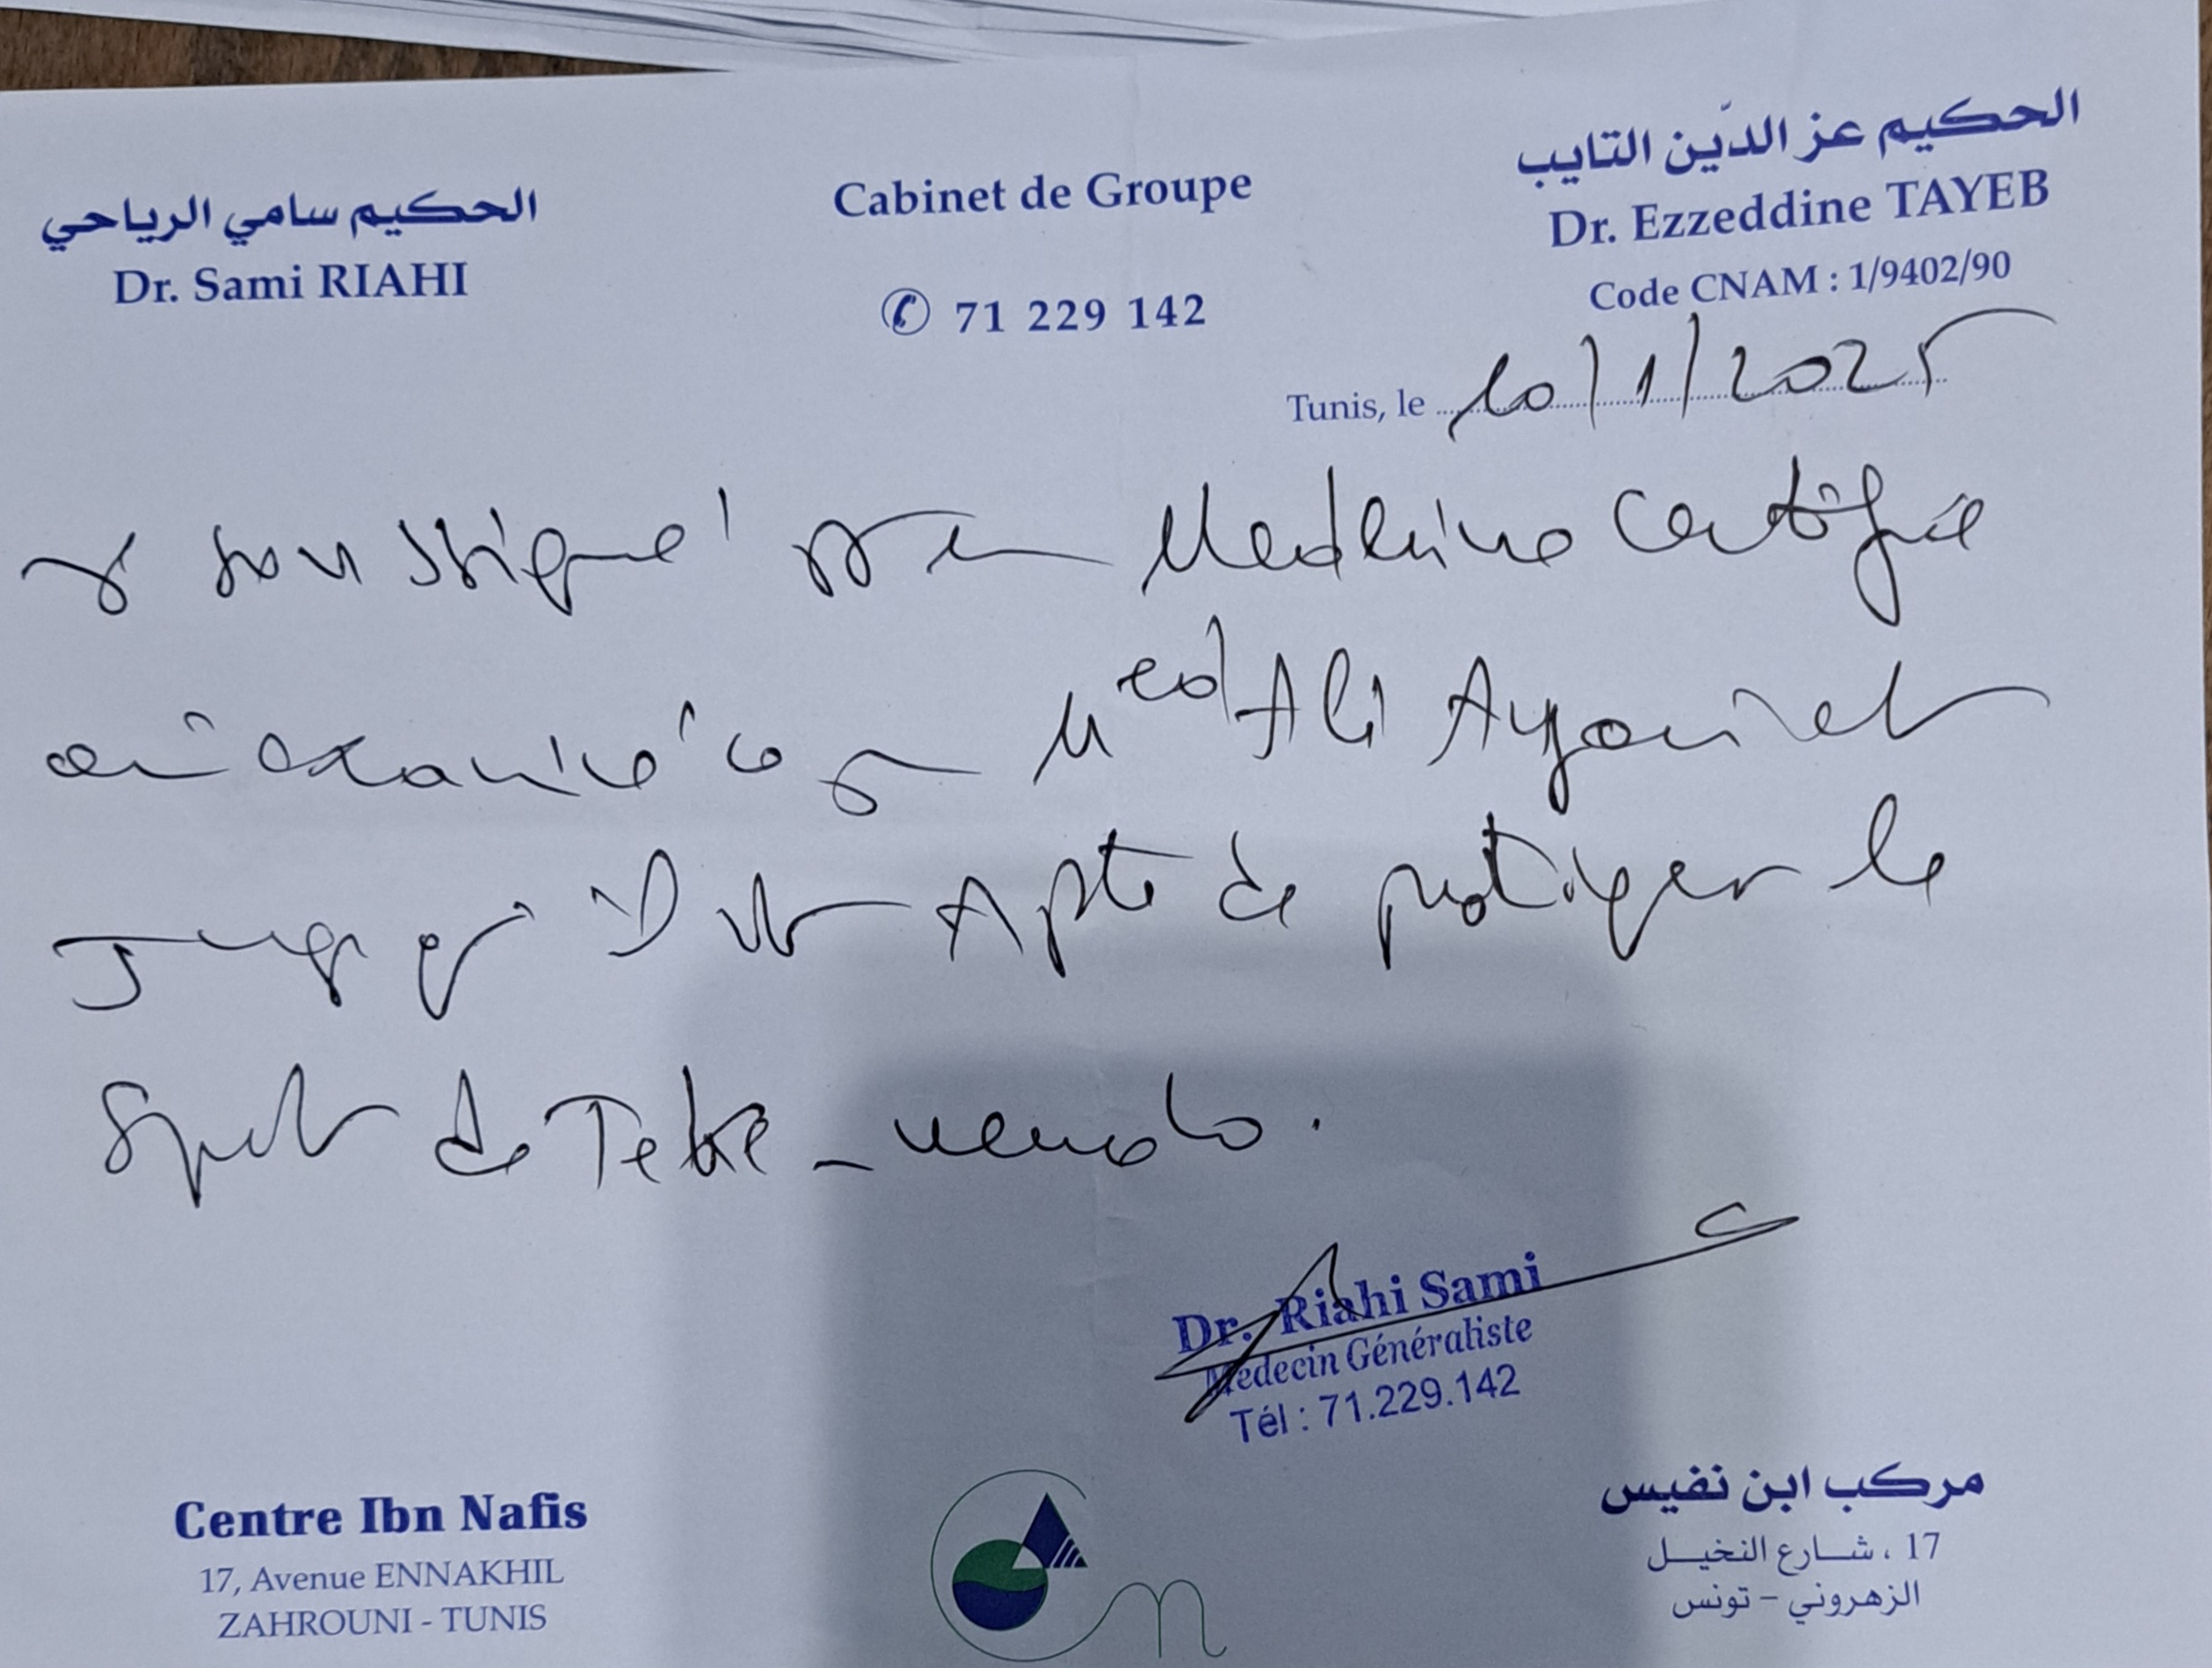 الحكيم سامي الرياحي
Dr. Sami RIAHI
Cabinet de Groupe
71 229 142
الحكيم عز الدّين التايب
Dr. Ezzeddine TAYEB
Code CNAM : 1/9402/90
Tunis, le 10/1/2025
Je soussigné Dr en Medecine Certifie
avoir examiné ce jour Med Ali Ayari et
juge qu'il est Apte de pratiquer le
Sport de
Dr. Riahi Sami
Médecin Généraliste
Tél : 71.229.142
Centre Ibn Nafis
17, Avenue ENNAKHIL
ZAHROUNI - TUNIS
مركب ابن نفيس
17 ، شارع النخيل
الزهروني - تونس